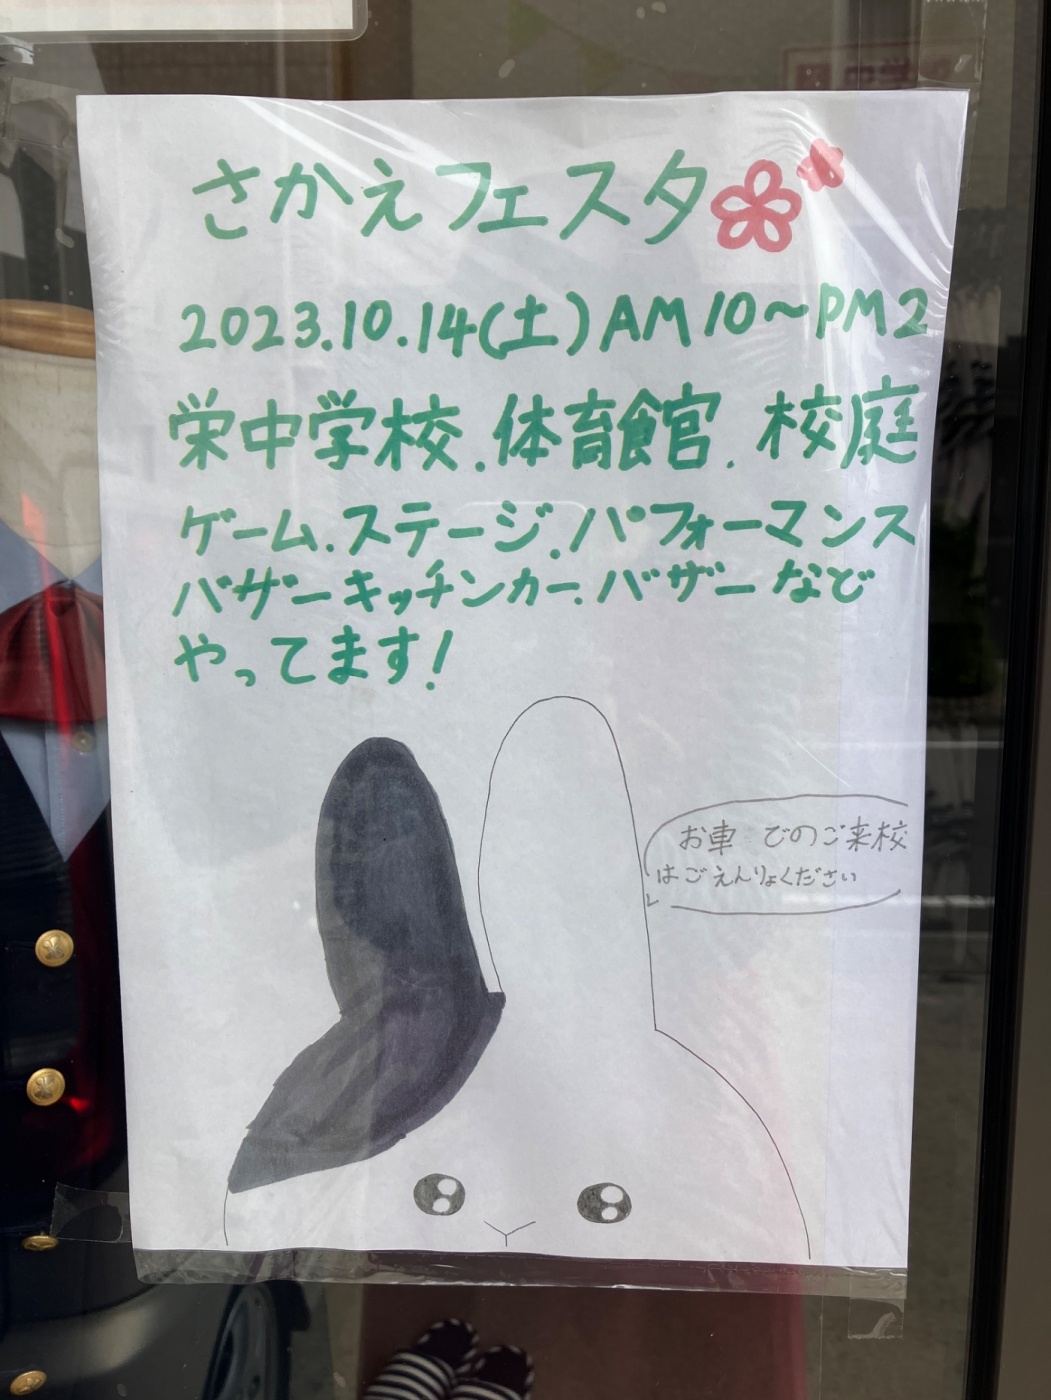 さかえフェスタ
2023.10.14(土)AM10〜PM2
栄中学校.体育館.校庭
ゲーム.ステージ.パフォーマンス
バザーキッチンカー.バザーなど
やってます!
お車 でのご来校
はごえんりょください